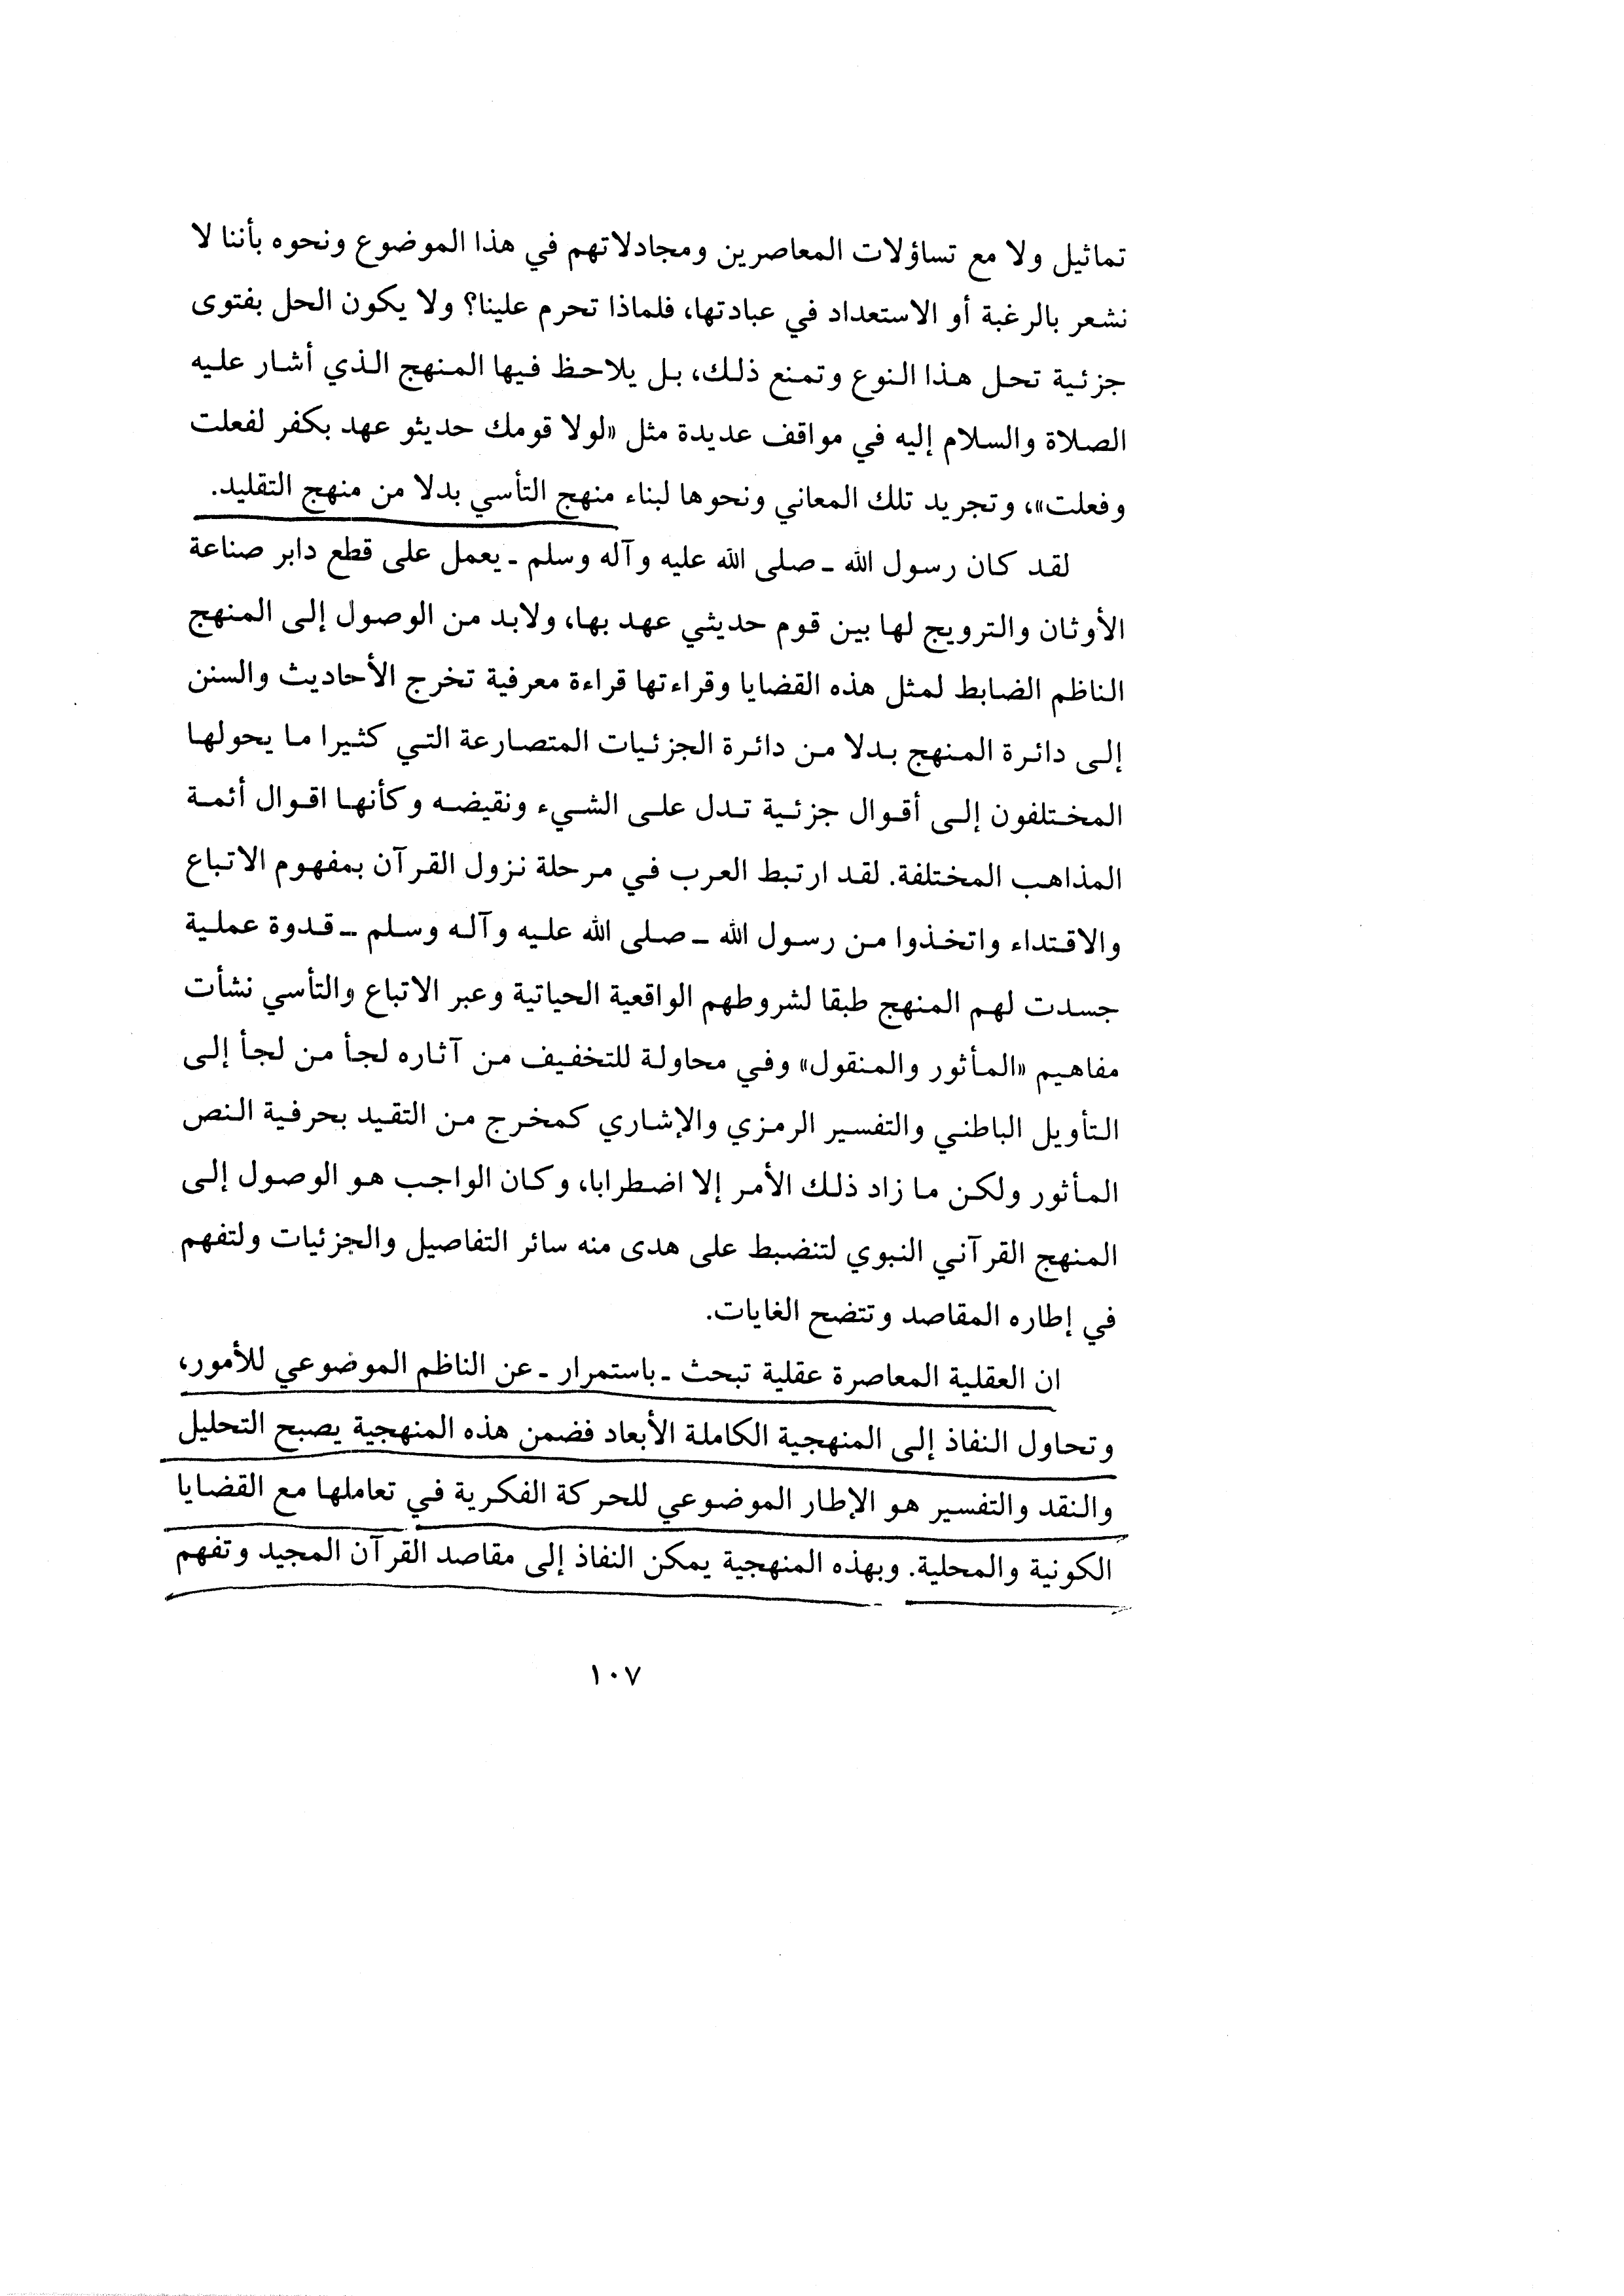 تماثيل ولا مع تساؤلات المعاصرين ومجادلاتهم في هذا الموضوع ونحوه بأننا لا
نشعر بالرغبة أو الاستعداد في عبادتها، فلماذا تحرم علينا؟ ولا يكون الحل بفتوى
جزئية تحل هذا النوع وتمنع ذلك، بل يلاحظ فيها المنهج الذي أشار عليه
الصلاة والسلام إليه في مواقف عديدة مثل «لولا قومك حديثو عهد بكفر لفعلت
وفعلت»، وتجريد تلك المعاني ونحوها لبناء منهج التأسي بدلا من منهج التقليد.
لقد كان رسول الله ـ صلى الله عليه وآله وسلم ـ يعمل على قطع دابر صناعة
الأوثان والترويج لها بين قوم حديثي عهد بها، ولابد من الوصول إلى المنهج
الناظم الضابط لمثل هذه القضايا وقراءتها قراءة معرفية تخرج الأحاديث والسنن
إلى دائرة المنهج بدلا من دائرة الجزئيات المتصارعة التي كثيرا ما يحولها
المختلفون إلى أقوال جزئية تدل على الشيء ونقيضه وكأنها اقوال أئمة
المذاهب المختلفة. لقد ارتبط العرب في مرحلة نزول القرآن بمفهوم الاتباع
والاقتداء واتخذوا من رسول الله ـ صلى الله عليه وآله وسلم ـ قدوة عملية
جسدت لهم المنهج طبقا لشروطهم الواقعية الحياتية وعبر الاتباع والتأسي نشأت
مفاهيم «المأثور والمنقول» وفي محاولة للتخفيف من آثاره لجأ من لجأ إلى
التأويل الباطني والتفسير الرمزي والإشاري كمخرج من التقيد بحرفية النص
المأثور ولكن ما زاد ذلك الأمر إلا اضطرابا، وكان الواجب هو الوصول إلى
المنهج القرآني النبوي لتنضبط على هدى منه سائر التفاصيل والجزئيات ولتفهم
في إطاره المقاصد وتتضح الغايات.
ان العقلية المعاصرة عقلية تبحث ـ باستمرار ـ عن الناظم الموضوعي للأمور،
وتحاول النفاذ إلى المنهجية الكاملة الأبعاد فضمن هذه المنهجية يصبح التحليل
والنقد والتفسير هو الإطار الموضوعي للحركة الفكرية في تعاملها مع القضايا
الكونية والمحلية. وبهذه المنهجية يمكن النفاذ إلى مقاصد القرآن المجيد وتفهم
١٠٧